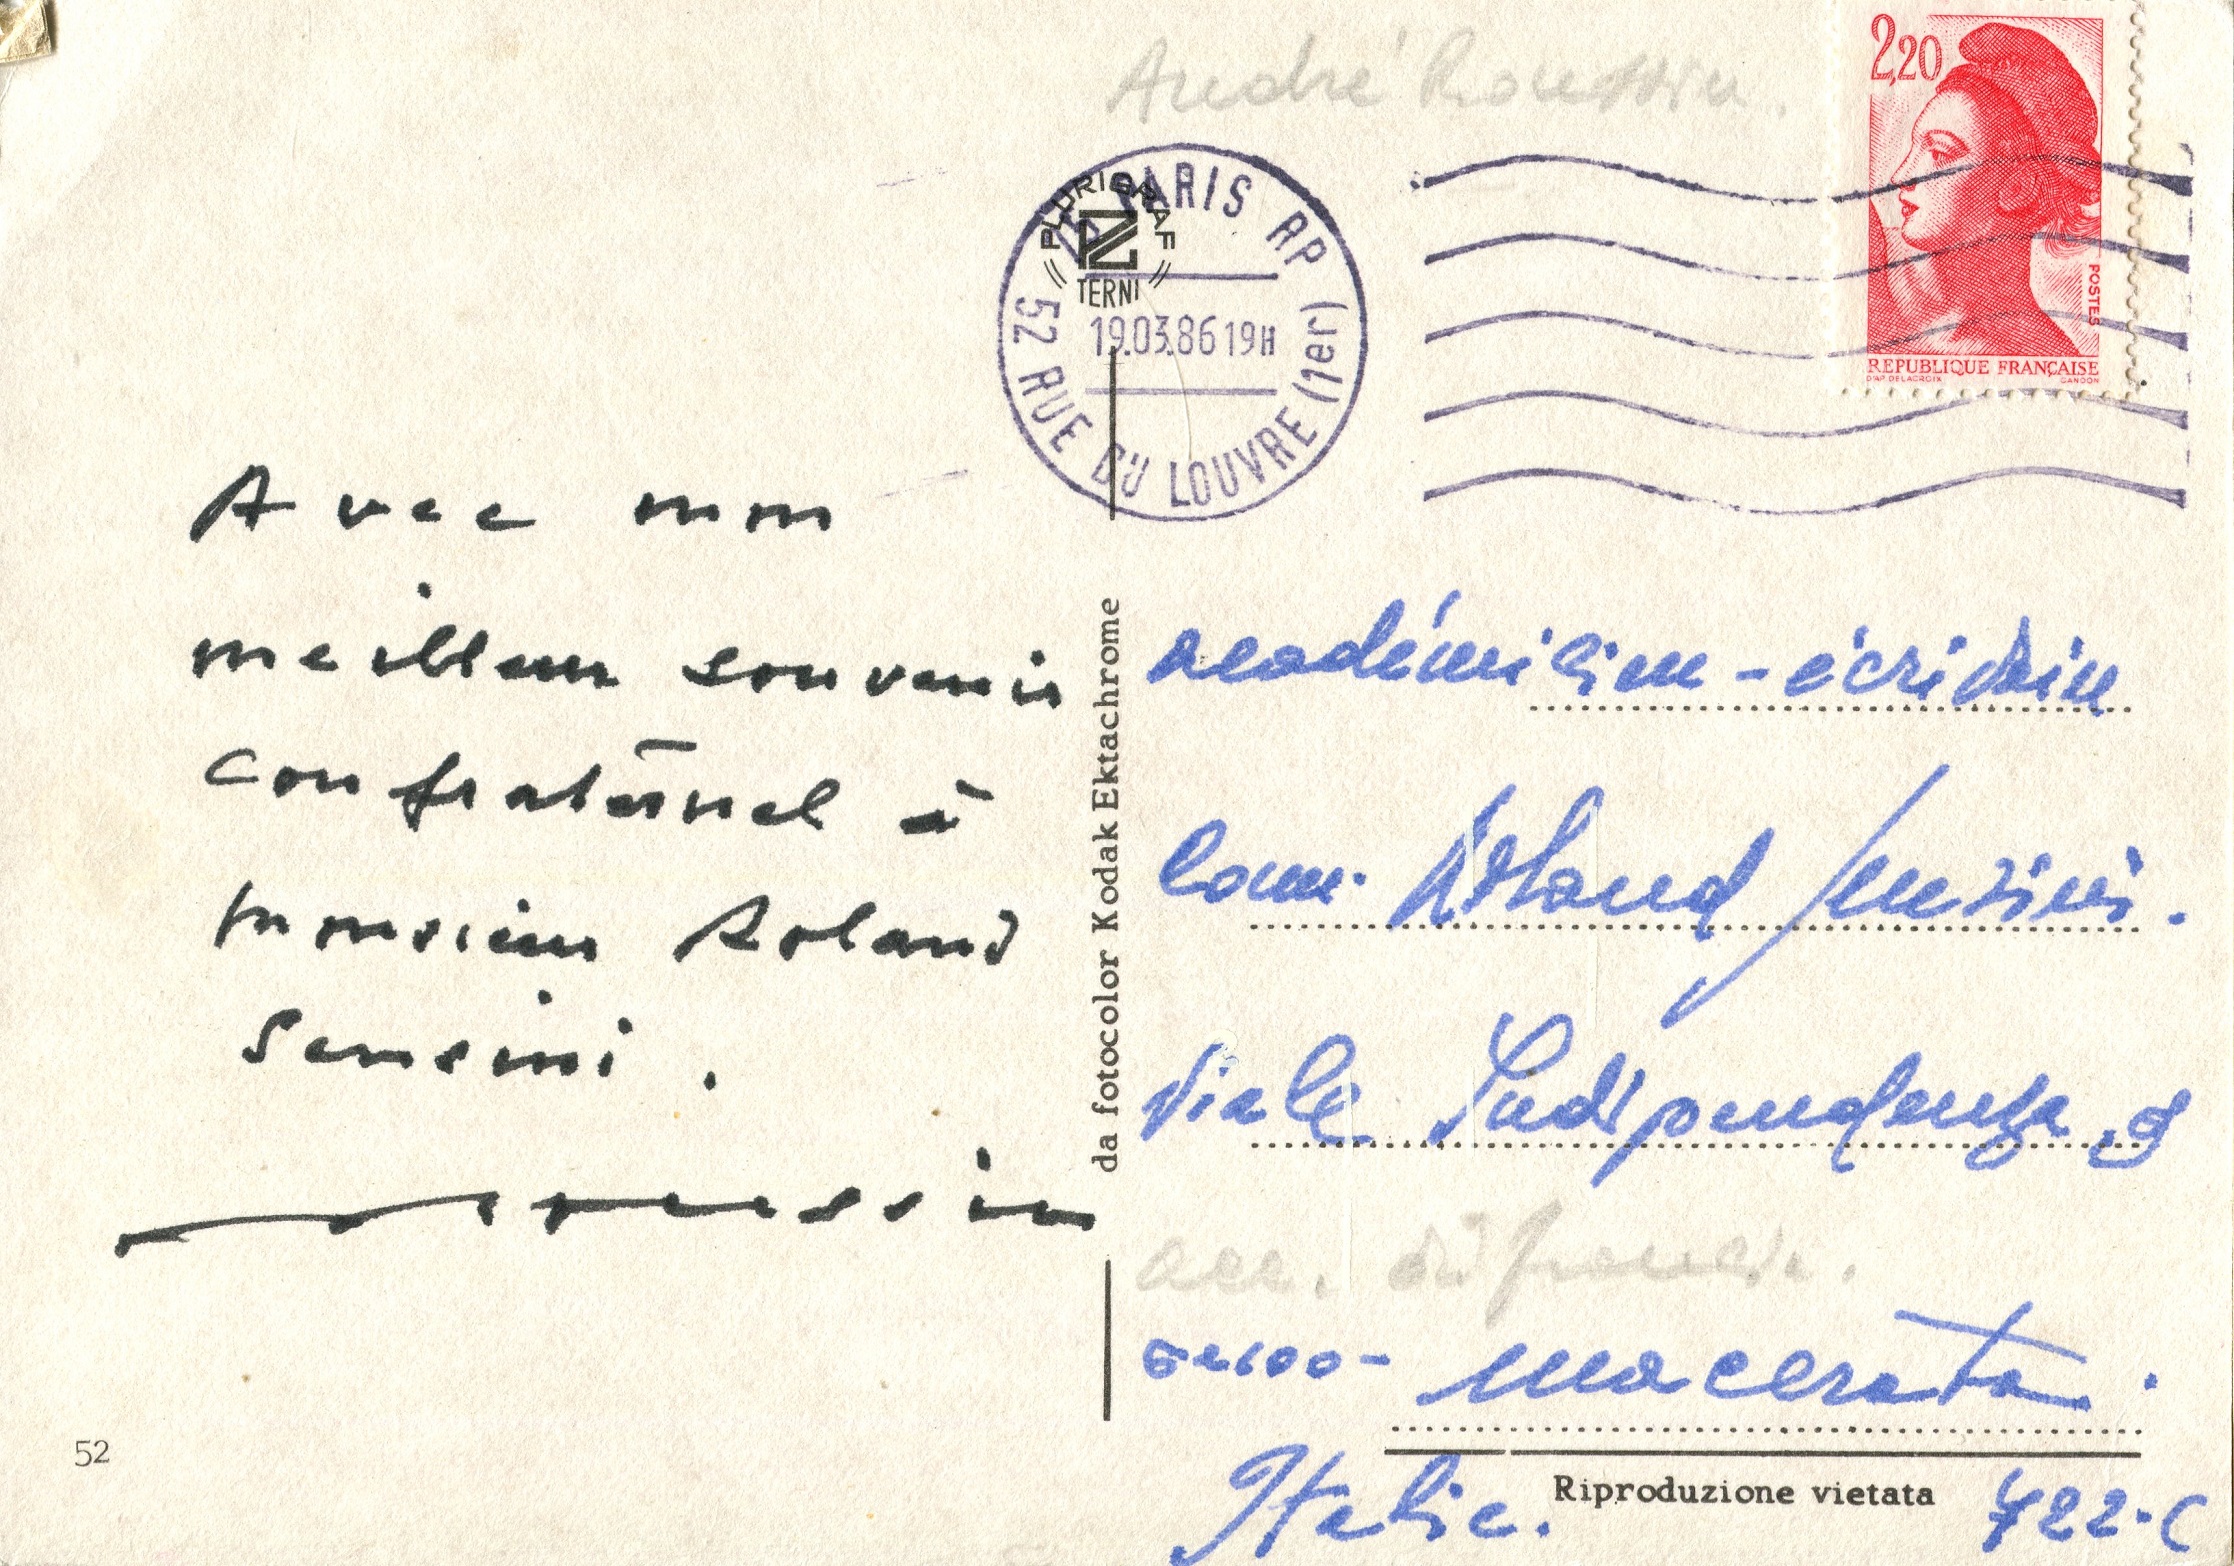 André Roussin.
2,20
POSTES
REPUBLIQUE FRANÇAISE
D'AP. DELACROIX GANDON
PARIS RP
19.03.86 19H
52 RUE DU LOUVRE (1er)
PLURIGRAF
TERNI
Avec mon
meilleur souvenir
confraternel à
monsieur Roland
Sensini.
Roussin
52
da fotocolor Kodak Ektachrome
académicien - écrivain
Com. Roland Sensini.
Viale Indipendenza,
acc. di
macerata.
Italie.
Riproduzione vietata
722-C